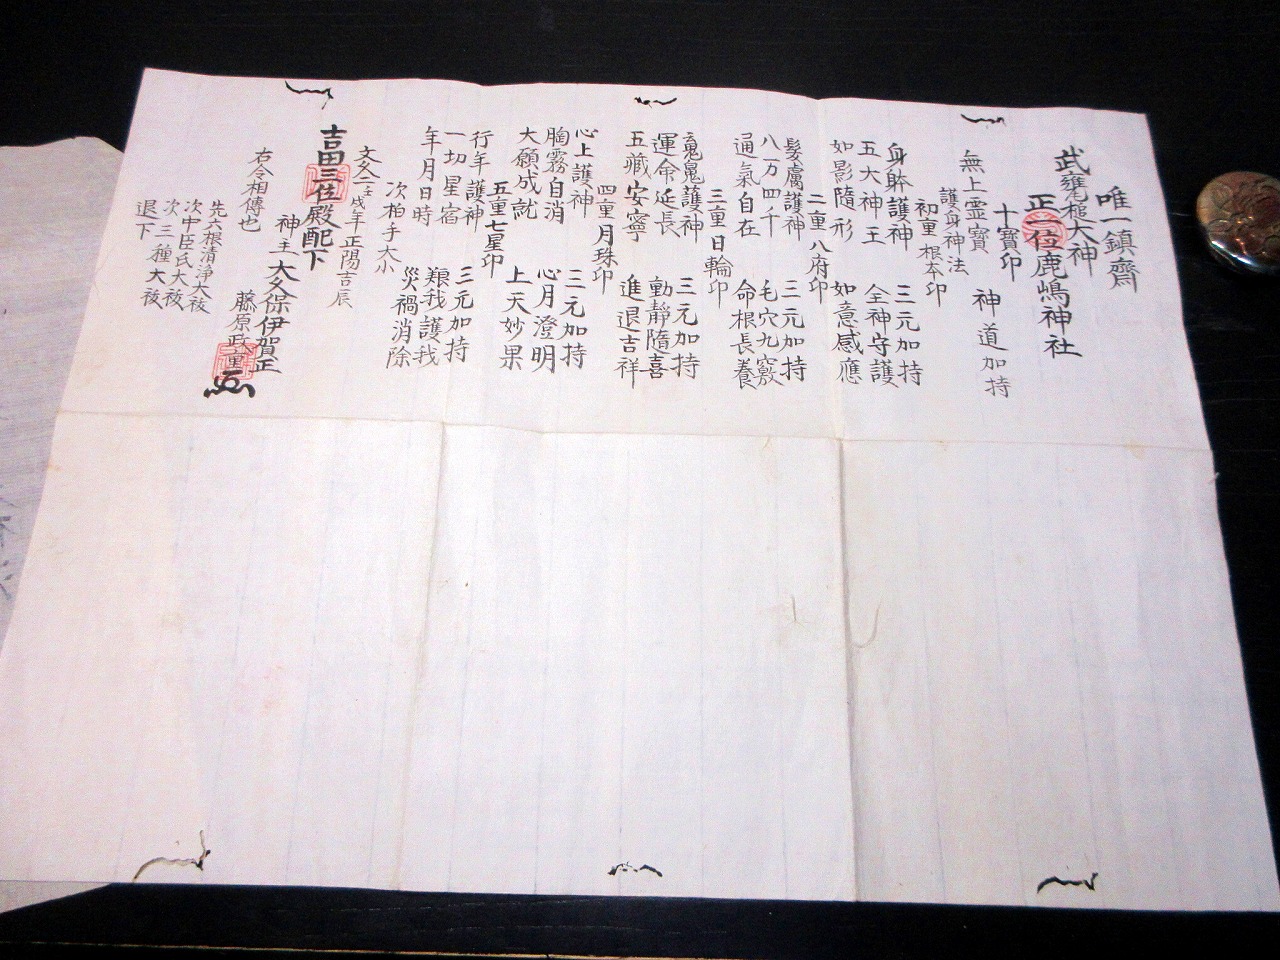 唯一鎮齋
武甕槌大神
正一位鹿嶋神社
十寶印
無上霊寶 神道加持
護身神法
初重 根本印
身躰護神 三元加持
五大神王 全神守護
如影隨形 如意感應
二重 八府印
髮膚護神 三元加持
八万四千 毛穴九竅
通氣自在 命根長養
三重 日輪印
魂魄護神 三元加持
運命延長 動靜隨喜
五藏安寧 進退吉祥
四重 月珠印
心上護神 三元加持
胸霧自消 心月澄明
大願成就 上天妙果
五重 七星印
行年護神 三元加持
一切星宿 難我護我
年月日時 災禍消除
次柏手大小
文久二壬戌年正陽吉辰
吉田三位殿配下
神主 大久保伊賀正
藤原政重
右令相傳也
先六根清浄大祓
次中臣氏大祓
次三種大祓
退下